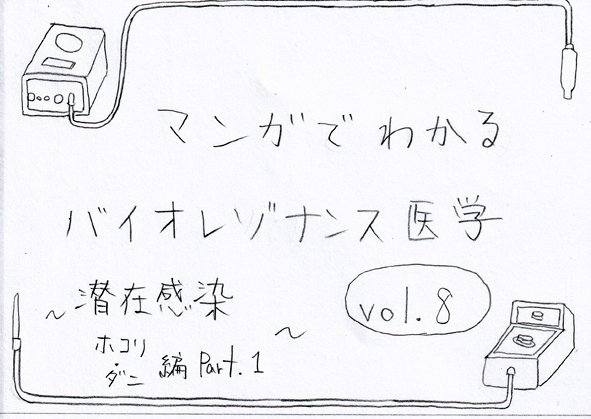 マンガでわかる
バイオレゾナンス医学
～潜在感染
ホコリ・ダニ編 Part.1～
vol.8